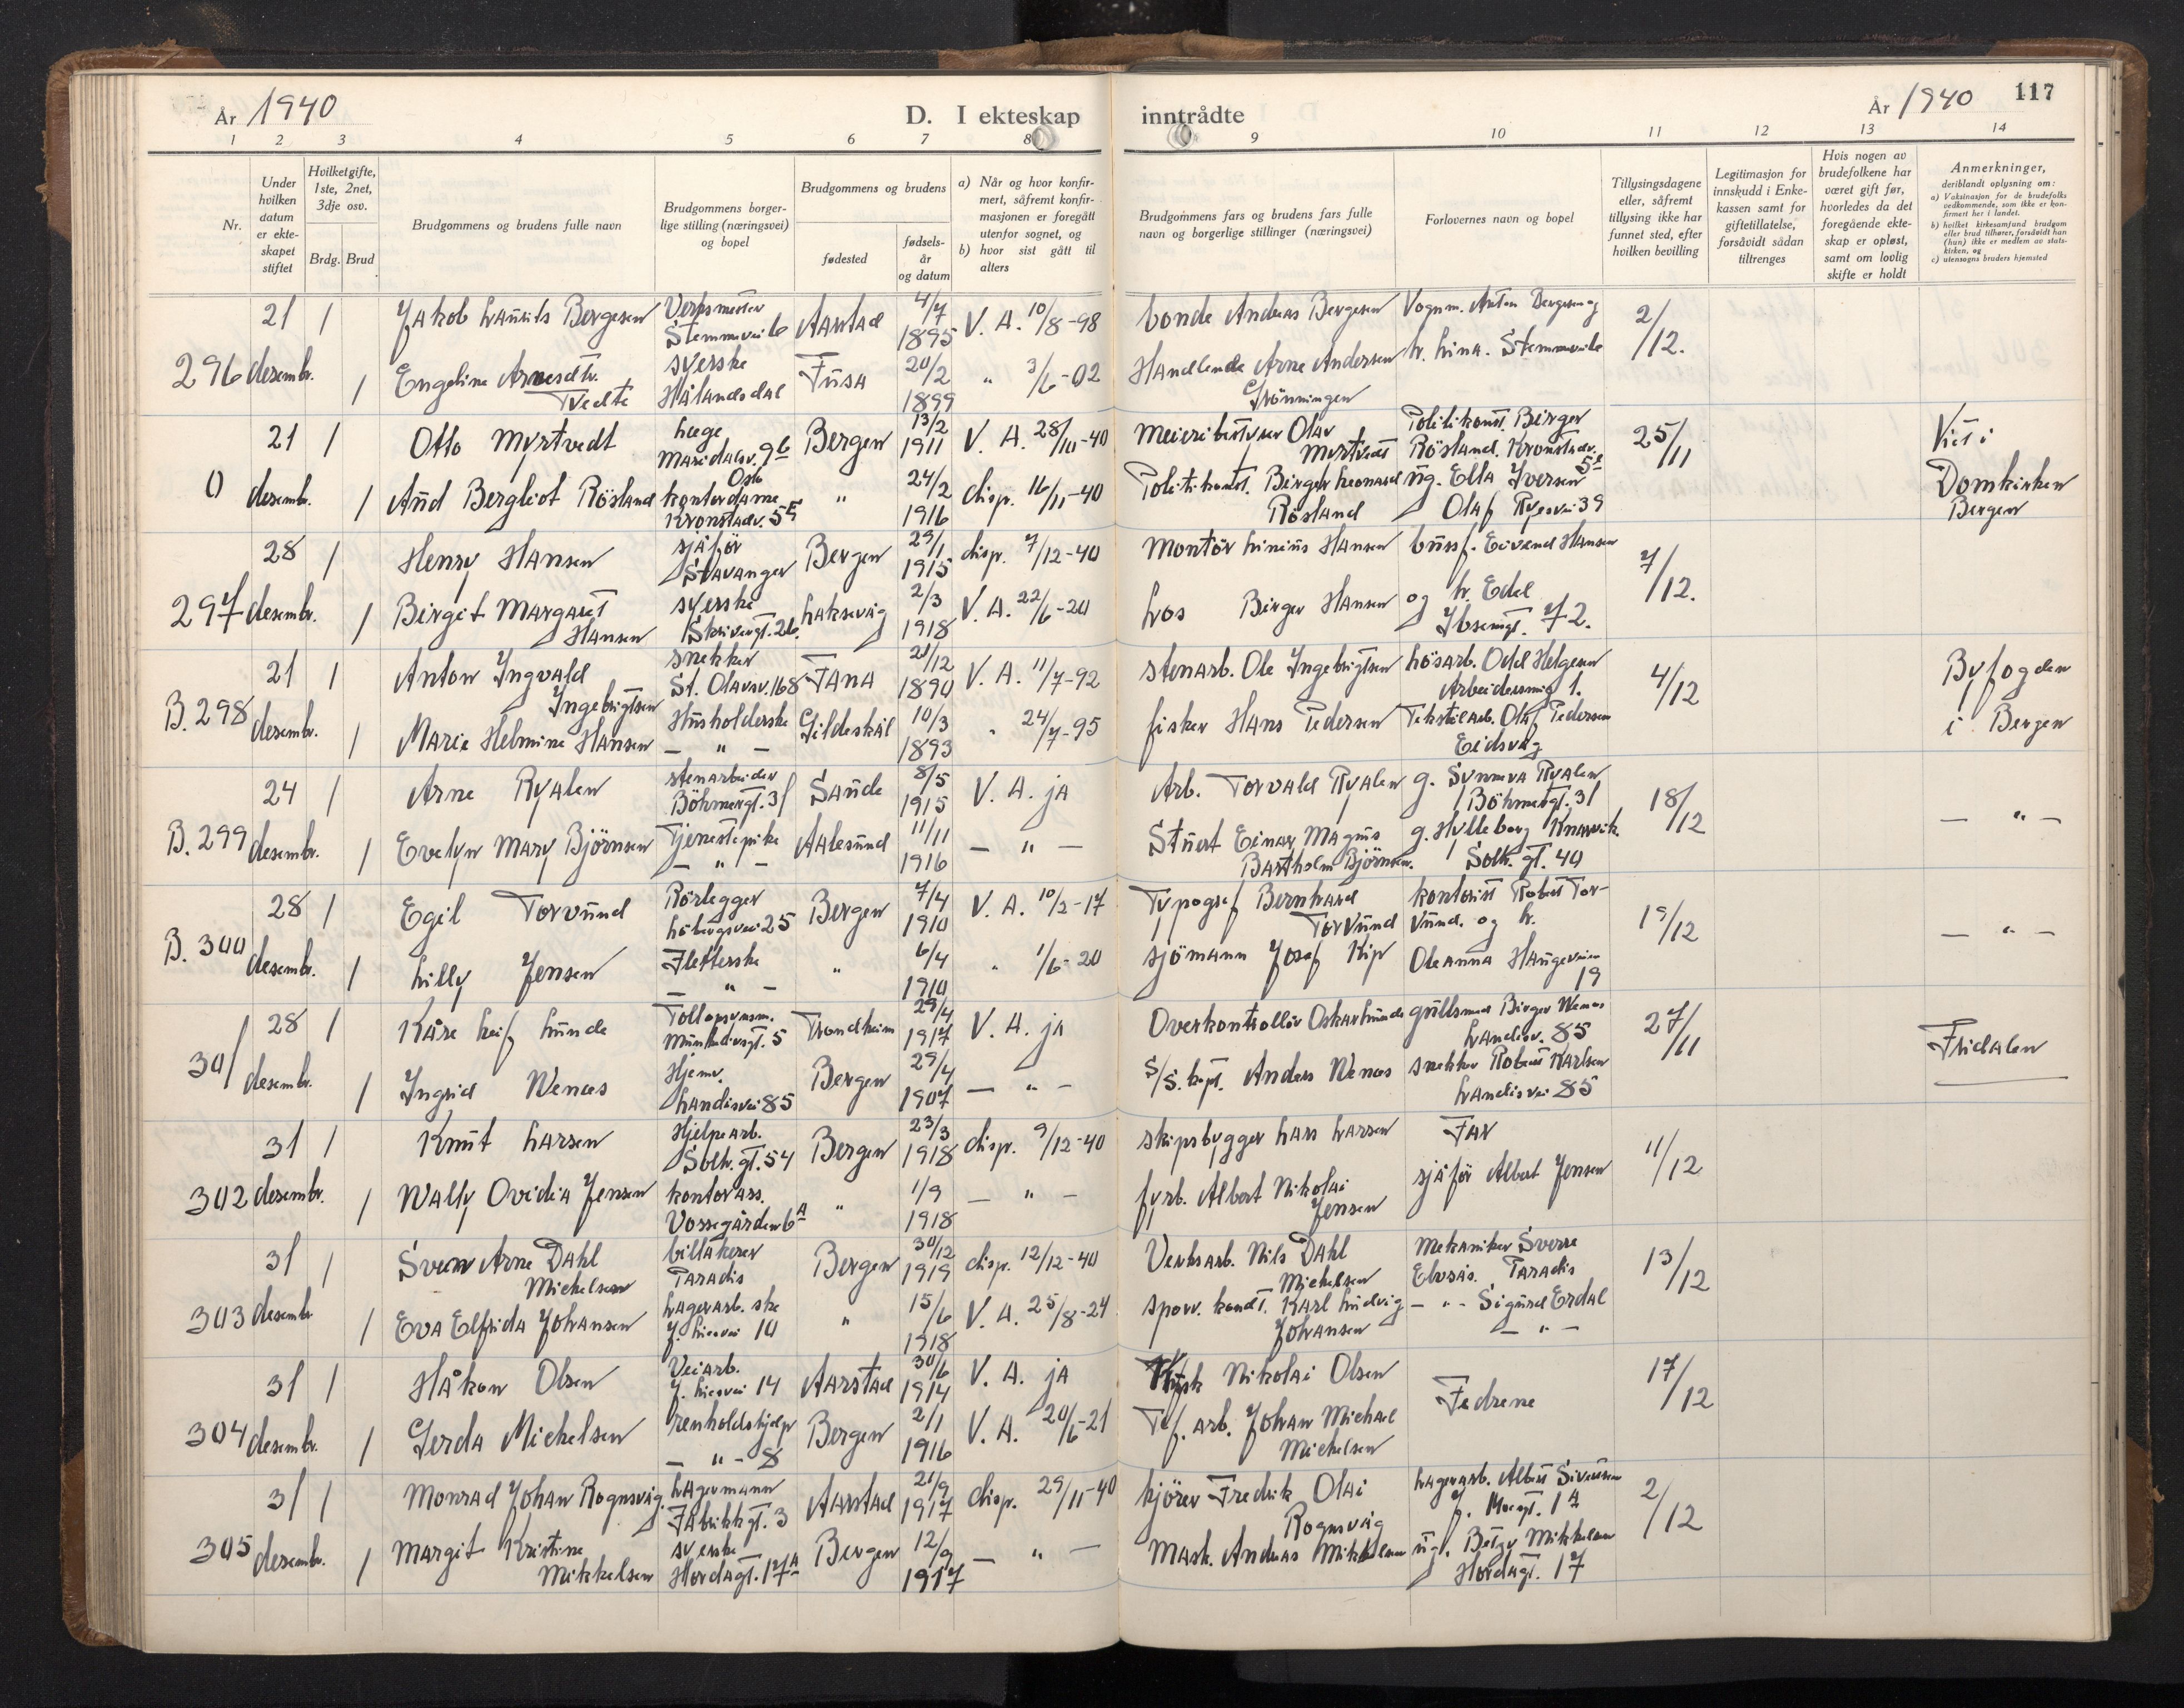 År 1940
D. I ekteskap inntrådte
År 1940 117
1 2 3 4 5 6 7 8 9 10 11 12 13 14
Nr.
Under hvilken datum er ekteskapet stiftet
Hvilket gifte, 1ste, 2net, 3dje osv.
Brdg. Brud
Brudgommens og brudens fulle navn
Brudgommens borgerlige stilling (næringsvei) og bopel
Brudgommens og brudens
fødested
fødselsår og datum
a) Når og hvor konfirmert, såfremt konfirmasjonen er foregått utenfor sognet, og
b) hvor sist gått til alters
Brudgommens fars og brudens fars fulle navn og borgerlige stillinger (næringsvei)
Forlovernes navn og bopel
Tillysingsdagene eller, såfremt tillysing ikke har funnet sted, efter hvilken bevilling
Legitimasjon for innskudd i Enkekassen samt for giftetillatelse, forsåvidt sådan tiltrenges
Hvis nogen av brudefolkene har været gift før, hvorledes da det foregående ekteskap er opløst, samt om lovlig skifte er holdt
Anmerkninger,
deriblandt oplysning om:
a) Vaksinasjon for de brudefolks vedkommende, som ikke er konfirmert her i landet.
b) hvilket kirkesamfund brudgom eller brud tilhører, forsåvidt han (hun) ikke er medlem av statskirken, og
c) utensogns bruders hjemsted
296 21 desembr. 1 Jakob Laurits Bergesen Verksmester Stemmevei 6 Aarstad 4/7 1895 V. A. 10/8-98 bonde Andreas Bergesen Vognm. Anton Bergesen og 2/12.
1 Engeline Arnesdtr. Tvedte syerske Hålandsdal Fusa 20/2 1899 " 3/6-02 Handlende Arne Andersen Grönningen
0 21 desemb. 1 Otto Myrtvedt Læge Maridalsv. 9b Oslo Bergen 13/2 1911 V. A. 28/10-40 Meieribestyrer Olav Myrtvedt Politikonst. Birger Rösland. Kronstadv. 5E 25/11 Viet i Domkirken Bergen
1 Aud Bergliot Rösland kontordame Kronstadv. 5E " 24/2 1916 disp. 16/11-40 Politikonst. Birger Leonard Rösland ug. Ella Iversen Olaf Ryesvei 39
297 28 desembr. 1 Henry Hansen sjåför Stavanger Bergen 29/1 1915 disp. 7/12-40 Montör Linius Hansen bussf. Eivend Hansen 7/12.
1 Birgit Margaret Hansen syerske Skrivergt. 26. Laksevåg 2/3 1918 V. A. 22/6-20 Los Birger Hansen og fr. Edel Ibsensgt. 72.
B. 298 21 desembr. 1 Anton Ingvald Ingebrigtsen snekker St. Olavsv. 168 Fana 21/12 1890 V. A. 11/7-92 stenarb. Ole Ingebrigtsen Odd Helgesen 4/12 Byfogden i Bergen
1 Marie Helmine Hansen Husholderske — " — Gildeskål 10/3 1893 " 24/7-95 fisker Hans Pedersen Tekstilarb. Olaf Pedersen Eidsvåg
B. 299 24 desembr. 1 Arne Ryalen stenarbeider Böhmergt. 31 Sande 8/5 1915 V. A. ja Arb. Torvald Ryalen g. Synneva Ryalen Böhmergt. 31 18/12 — " —
1 Evelyn Mary Björnsen Tjenestepike — " — Aalesund 11/11 1916 — " — Stuert Einar Magnus Bartholm Björnsen. g. Hylleborg Knarvik Solh. gt. 40
B. 300 28 desembr. 1 Egil Torvund Rörlegger Löbergsvei 25 Bergen 7/4 1910 V. A. 10/2-17 Typograf Bernhard Torvund kontorist Robert Torvund. og fr. 19/12 — " —
1 Lilly Jensen Fletterske — " — " 6/4 1910 " 1/6-20 sjömann Josef Kip Oleanna Haugeveien 19
301 28 desembr. 1 Kåre Leif Lunde Tollopsynsm. 5 Trondheim 29/4 1917 V. A. ja Overkontrollör Oskar Lunde gullsmed Birger Wenæs Landåsv. 85 27/11 Fridalen
1 Ingrid Wenæs Hjemv. Landåsvei 85 Bergen 29/4 1907 — " — S/S. kpt. Anders Wenæs snekker Robert Karlsen Landåsvei 85
302 31 desembr. 1 Knut Larsen Hjelpearb. Solh. gt. 54 Bergen 23/3 1918 disp. 9/12-40 skipsbygger Lars Larsen Far 11/12
1 Wally Ovidia Jensen kontorass. Vossegården 6A " 1/9 1918 — " — fyrb. Albert Nikolai Jensen sjåför Albert Jensen
303 31 desembr 1 Svein Arne Dahl Mickelsen billakerer Paradis Bergen 30/12 1919 disp. 12/12-40 Verksarb. Nils Dahl Mickelsen Mekaniker Sverre Elvrås. Paradis 13/12
1 Eva Elfrida Johansen Lagerarb. ske J. Liesvei 10 " 15/6 1918 V. A. 25/8-24 sporv. kond. Karl Ludvig Johansen — " — Sigurd Erdal — " —
304 31 desembr. 1 Håkon Olsen Veiarb. J. Liesvei 14 Aarstad 30/6 1914 V. A. ja Nikolai Olsen Fedrene 17/12
1 Gerda Mickelsen renholdshjelp — " — 8 Bergen 2/1 1916 V. A. 20/6-21 Tef. arb. Johan Michael Mickelsen
305 31 desembr. 1 Monrad Johan Rognsvåg. Lagermann Fabrikkgt. 3 Aarstad 21/9 1917 disp. 29/11-40 kjörer Fredrik Olai Rognsvåg Lagerarb. Albert Sivertsen 1A 2/12
1 Margit Kristine Mikkelsen syerske Hordagt. 17A Bergen 12/9 1917 — " — Mask. Andreas Mikkelsen ug. Betzy Mikkelsen Hordagt. 17